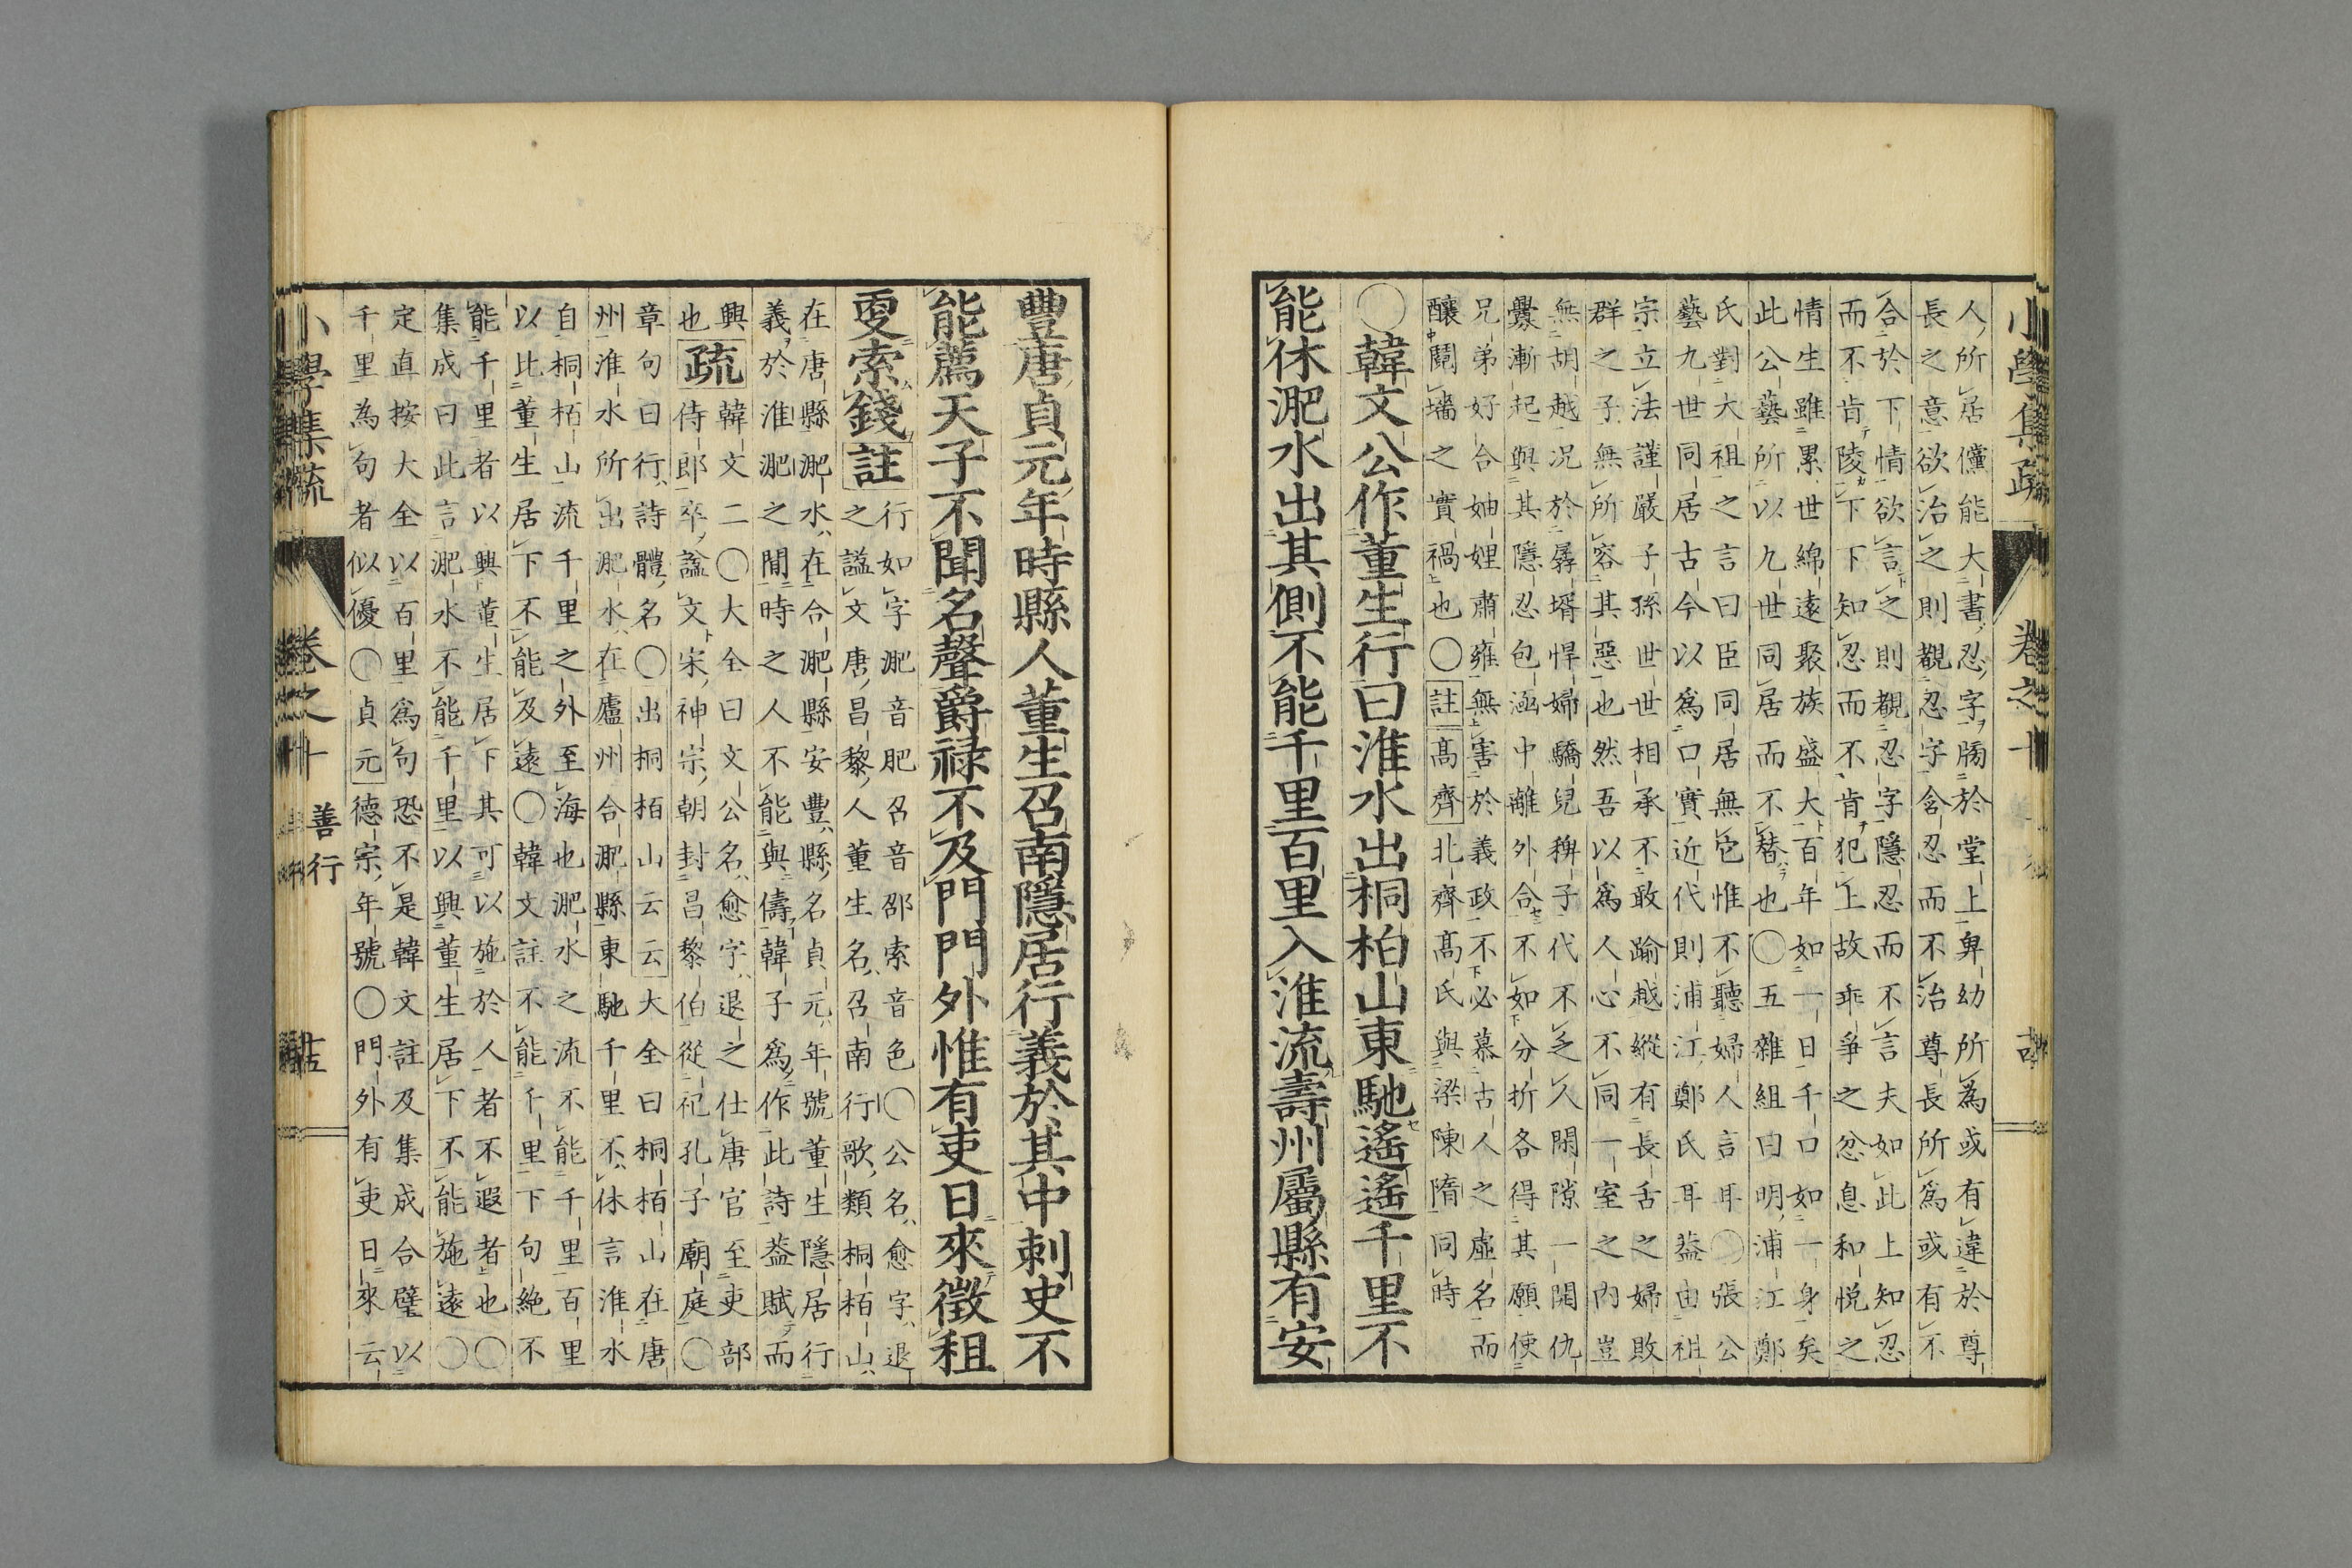 小學集疏 卷之十
人所居僅能大書忍字牓於堂上卑幼所為或有違於尊
長之意欲治之則觀忍字含忍而不治尊長所爲或有不
合於下情欲言之則觀忍字隱忍而不言夫如此上知忍
而不肯陵下下知忍而不肯犯上故乖爭之忿息和悅之
情生雖累世綿遠聚族盛大百年如一日千口如一身矣
此公藝所以九世同居而不替也〇五雜組曰明浦江鄭
氏對大祖之言曰臣同居無它惟不聽婦人言耳〇張公
藝九世同居古今以爲口實近代則浦江鄭氏耳葢由祖
宗立法謹嚴子孫世世相承不敢踰越縱有長舌之婦敗
群之子無所容其惡也然吾以爲人心不同一室之內豈
無胡越况於孱壻悍婦驕兒稗子代不乏人閑隙一開仇
釁漸起與其隱忍包涵中離外合不如分折各得其願使
兄弟好合妯娌肅雍無害於義政不必慕古人之虛名而
釀鬩墻之實禍也〇註高齊北齊高氏與梁陳隋同時
〇韓文公作董生行曰淮水出桐柏山東馳遙遙千里不
能休淝水出其側不能千里百里入淮流壽州屬縣有安
豐唐貞元年時縣人董生召南隱居行義於其中刺史不
能薦天子不聞名聲爵祿不及門門外惟有吏日來徵租
更索錢註行如字淝音肥召音邵索音色〇公名愈字退
之謚文唐昌黎人董生名召南行歌類桐柏山
在唐縣淝水在合淝縣安豐縣名貞元年號董生隱居行
義於淮淝之間時之人不能與儔韓子爲作此詩葢賦而
興韓文二〇大全曰文公名愈字退之仕唐官至吏部
也疏侍郎卒謚文宋神宗朝封昌黎伯從祀孔子廟庭〇
章句曰行詩體名〇出桐柏山云云大全曰桐柏山在唐
州淮水所出淝水在廬州合淝縣東馳千里不休言淮水
自桐柏山流千里之外至海也淝水之流不能千里百里
以比董生居下不能及遠〇韓文註不能千里下句絶不
能千里者以興董生居下其可以施於人者不遐者也〇
集成曰此言淝水不能千里以興董生居下不能施遠〇
定直按大全以百里爲句恐不是韓文註及集成合璧以
千里為句者似優〇貞元德宗年號〇門外有吏日來云
小學集疏 卷之十 善行